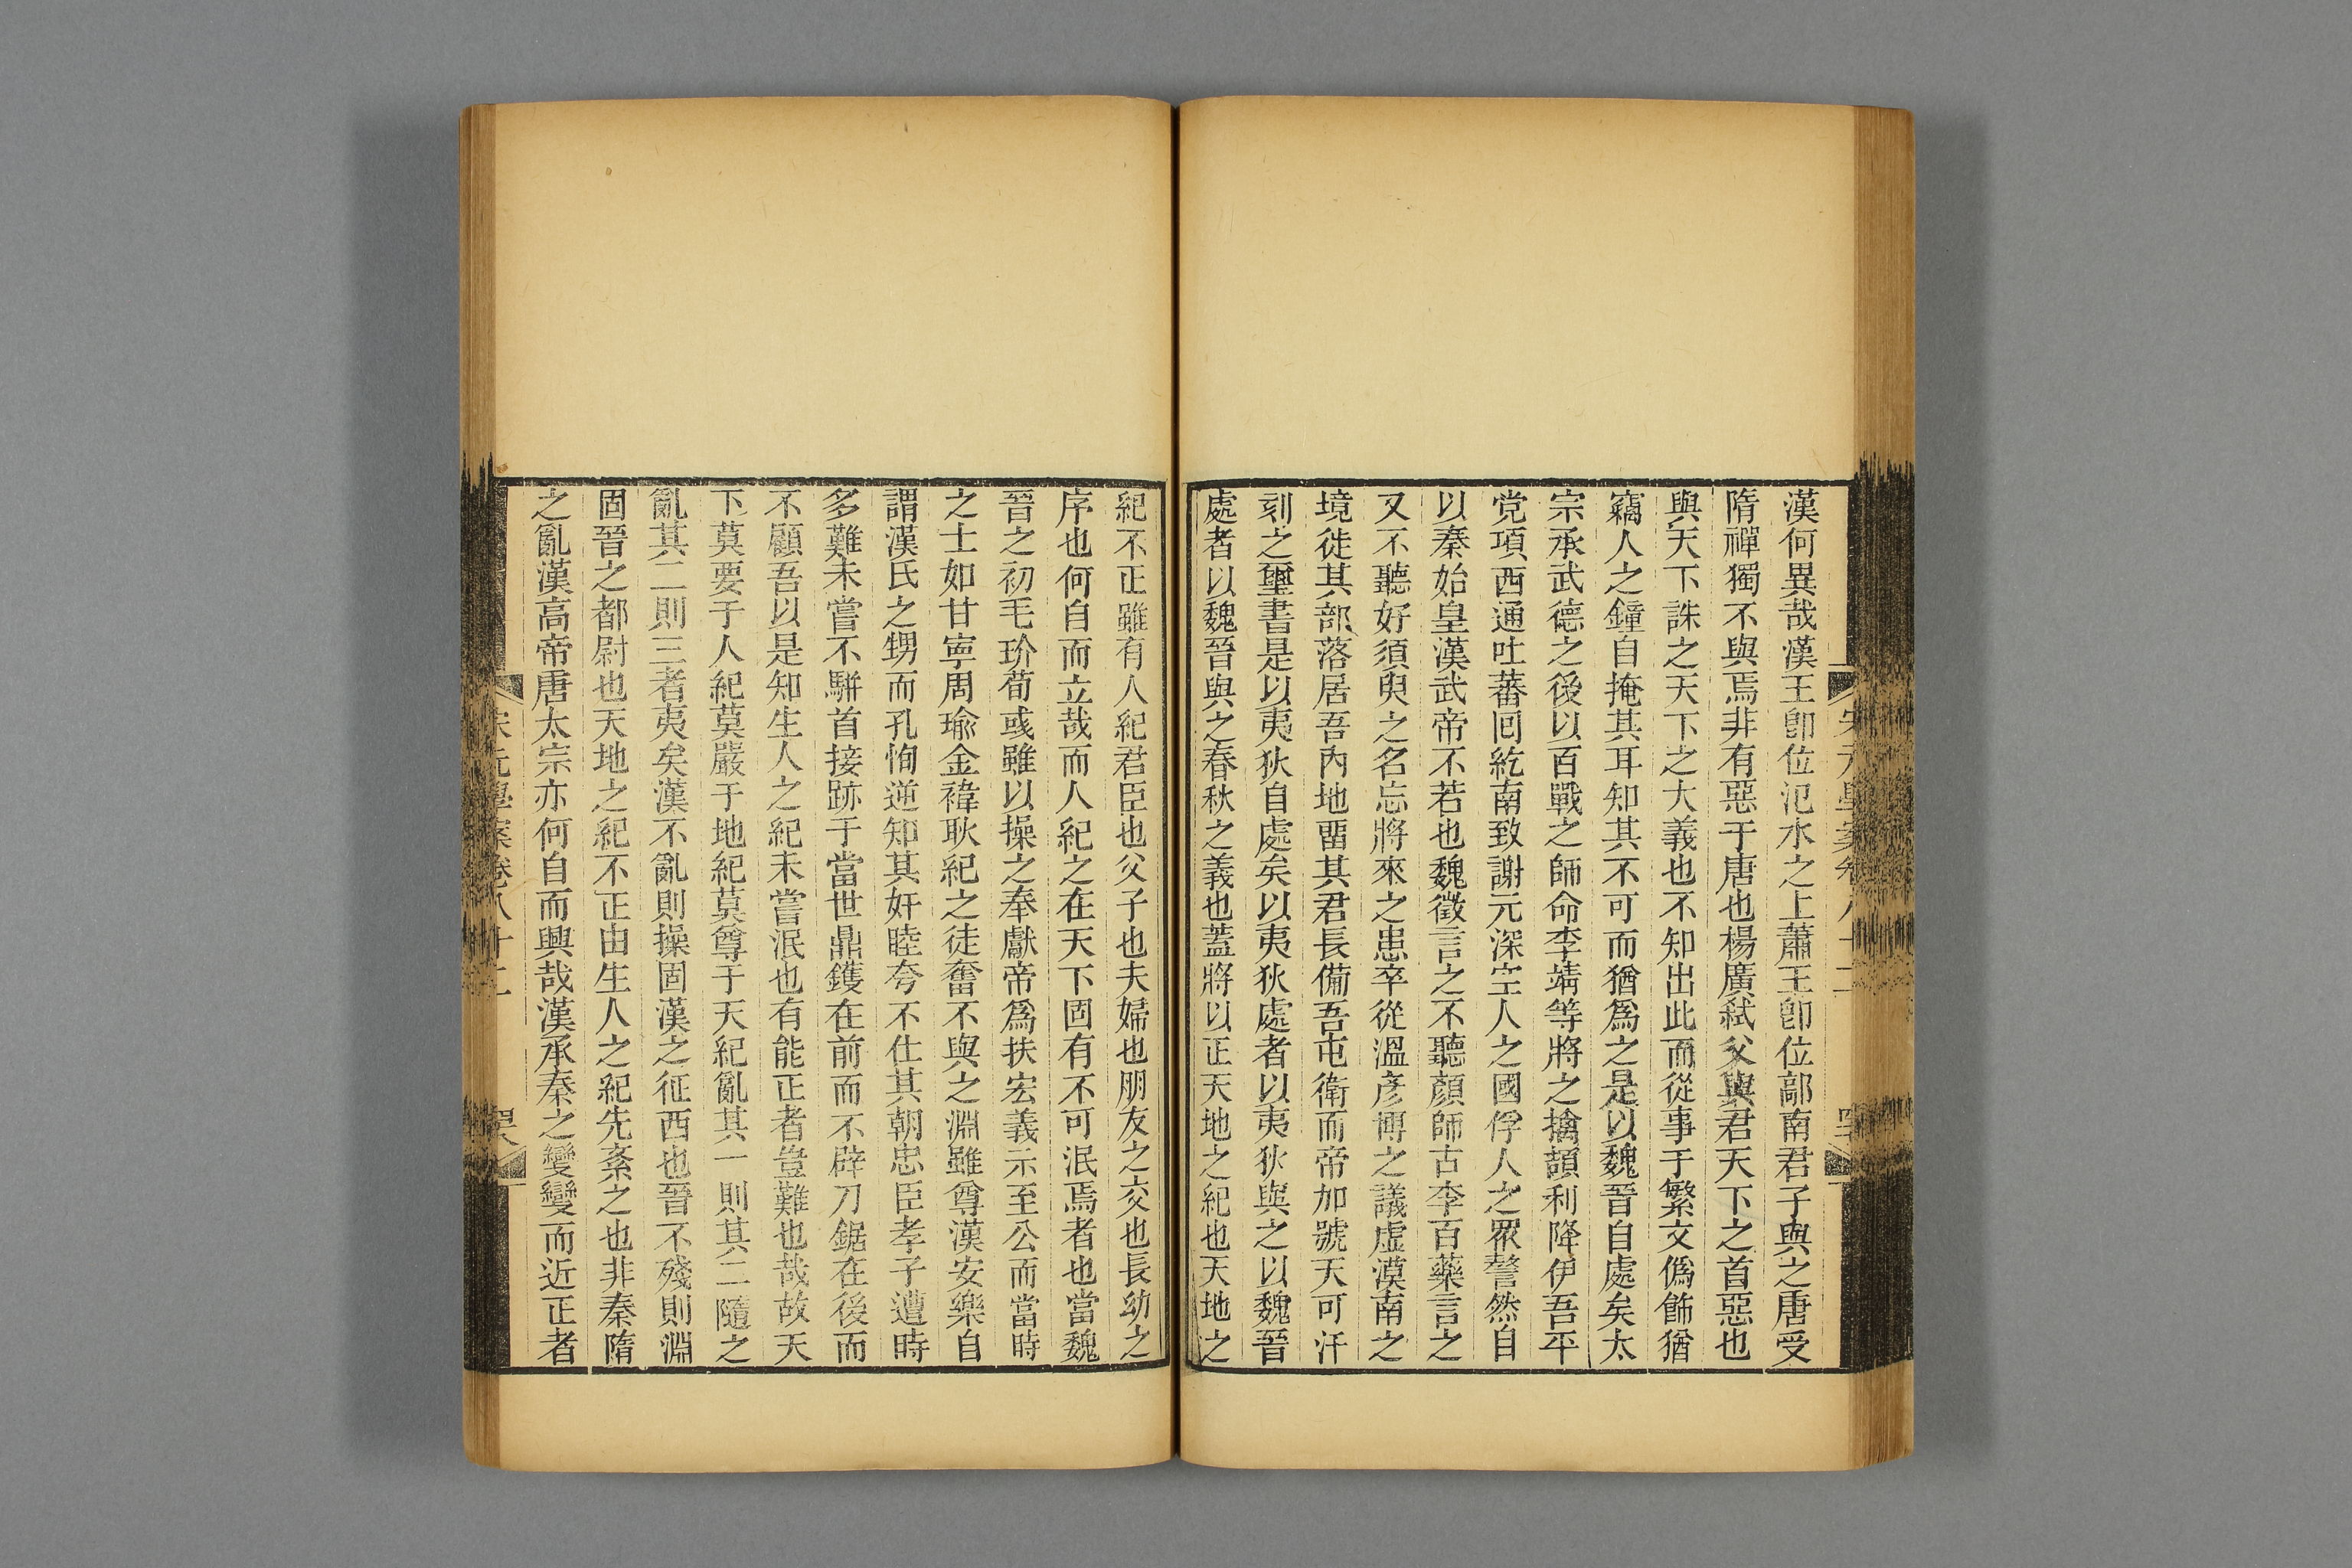 漢何異哉漢王卽位氾水之上蕭王卽位鄗南君子與之唐受
隋禪獨不與焉非有惡于唐也楊廣弑父與君天下之首惡也
與天下誅之天下之大義也不知出此而從事于繁文僞飾猶
竊人之鐘自掩其耳知其不可而猶爲之是以魏晉自處矣太
宗承武德之後以百戰之師命李靖等將之擒頡利降伊吾平
党項西通吐蕃回紇南致謝元深空人之國俘人之眾謷然自
以秦始皇漢武帝不若也魏徵言之不聽顏師古李百藥言之
又不聽好須臾之名忘將來之患卒從溫彥博之議虛漠南之
境徙其部落居吾內地畱其君長備吾屯衛而帝加號天可汗
刻之璽書是以夷狄自處矣以夷狄處者以夷狄與之以魏晉
處者以魏晉與之春秋之義也蓋將以正天地之紀也天地之
紀不正雖有人紀君臣也父子也夫婦也朋友之交也長幼之
序也何自而立哉而人紀之在天下固有不可泯焉者也當魏
晉之初毛玠荀彧雖以操之奉獻帝爲扶宏義示至公而當時
之士如甘寧周瑜金褘耿紀之徒奮不與之淵雖尊漢安樂自
謂漢氏之甥而孔恂逆知其奸睦夸不仕其朝忠臣孝子遭時
多難未嘗不駢首接跡于當世鼎鑊在前而不辟刀鋸在後而
不顧吾以是知生人之紀未嘗泯也有能正者豈難也哉故天
下莫要于人紀莫嚴于地紀莫尊于天紀亂其一則其二隨之
亂其二則三者夷矣漢不亂則操固漢之征西也晉不殘則淵
固晉之都尉也天地之紀不正由生人之紀先紊之也非秦隋
之亂漢高帝唐太宗亦何自而興哉漢承秦之變變而近正者
宋元學案卷八十二